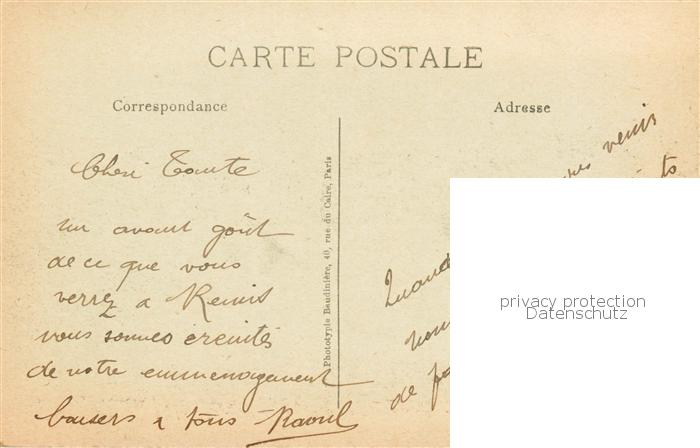 CARTE POSTALE
Correspondance
Adresse
Cheri Tante
un avant goût
de ce que vous
verrez a Reims
vous sommes éreintés
de notre emmenagement
baisers a tous Raoul
Phototypie Baudinière, 40, rue du Caire, Paris
venir
Quand
de
privacy protection
Datenschutz